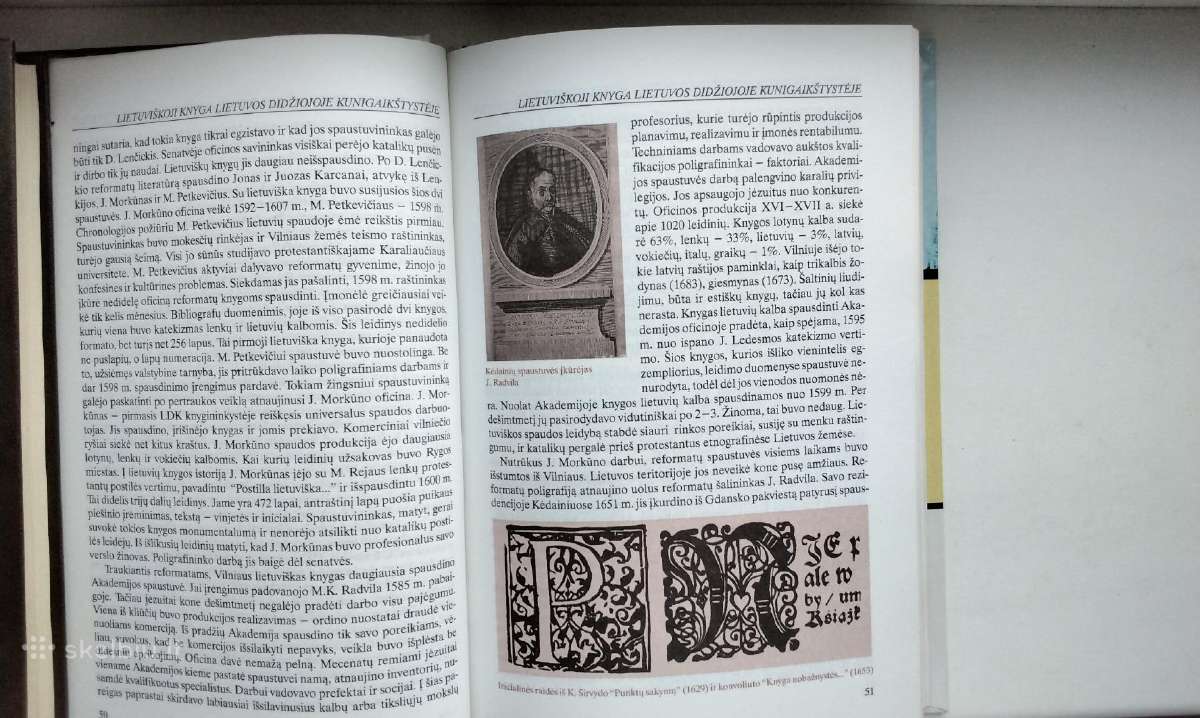 LIETUVIŠKOJI KNYGA LIETUVOS DIDŽIOJOJE KUNIGAIKŠTYSTĖJE
ningai sutaria, kad tokia knyga tikrai egzistavo ir kad jos spaustuvininkas galėjo
būti tik D. Lenčickis. Senatvėje oficinos savininkas visiškai perėjo katalikų pusėn
ir dirbo tik jų naudai. Lietuviškų knygų jis daugiau neišspausdino. Po D. Lenčic-
kio reformatų literatūrą spausdino Jonas ir Juozas Karcanai, atvykę iš Len-
kijos, J. Morkūnas ir M. Petkevičius. Su lietuviška knyga buvo susijusios šios dvi
spaustuvės. J. Morkūno oficina veikė 1592–1607 m., M. Petkevičiaus – 1598 m.
Chronologijos požiūriu M. Petkevičius lietuvių spaudoje ėmė reikštis pirmiau.
Spaustuvininkas buvo mokesčių rinkėjas ir Vilniaus žemės teismo raštininkas,
turėjo gausią šeimą. Visi jo sūnūs studijavo protestantiškajame Karaliaučiaus
universitete. M. Petkevičius aktyviai dalyvavo reformatų gyvenime, žinojo jo
konfesines ir kultūrines problemas. Siekdamas jas pašalinti, 1598 m. raštininkas
įkūrė nedidelę oficiną reformatų knygoms spausdinti. Įmonėlė greičiausiai vei-
kė tik kelis mėnesius. Bibliografų duomenimis, joje iš viso pasirodė dvi knygos,
kurių viena buvo katekizmas lenkų ir lietuvių kalbomis. Šis leidinys nedidelio
formato, bet turįs net 256 lapus. Tai pirmoji lietuviška knyga, kurioje panaudota
ne puslapių, o lapų numeracija. M. Petkevičiui spaustuvė buvo nuostolinga. Be
to, užsiėmęs valstybine tarnyba, jis pritrūkdavo laiko poligrafiniams darbams ir
dar 1598 m. spausdinimo įrengimus pardavė. Tokiam žingsniui spaustuvininką
galėjo paskatinti po pertraukos veiklą atnaujinusi J. Morkūno oficina. J. Mor-
kūnas – pirmasis LDK knygininkystėje reiškęsis universalus spaudos darbuo-
tojas. Jis spausdino, įrišinėjo knygas ir jomis prekiavo. Komerciniai vilniečio
ryšiai siekė net kitus kraštus. J. Morkūno spaudos produkcija ėjo daugiausia
lotynų, lenkų ir vokiečių kalbomis. Kai kurių leidinių užsakovas buvo Rygos
miestas. I lietuvių knygos istoriją J. Morkūnas įėjo su M. Rejaus lenkų protes-
tantų postilės vertimu, pavadintu “Postilla lietuviška...” ir išspausdintu 1600 m.
Tai didelis trijų dalių leidinys. Jame yra 472 lapai, antraštinį lapą puošia puikaus
piešinio įrėminimas, tekstą – vinjetės ir inicialai. Spaustuvininkas, matyt, gerai
suvokė tokios knygos monumentalumą ir nenorėjo atsilikti nuo katalikų posti-
lės leidėjų. Iš išlikusių leidinių matyti, kad J. Morkūnas buvo profesionalus savo
verslo žinovas. Poligrafininko darbą jis baigė dėl senatvės.
Traukiantis reformatams, Vilniaus lietuviškas knygas daugiausia spausdino
Akademijos spaustuvė. Jai įrengimus padovanojo M.K. Radvila 1585 m. pabai-
goje. Tačiau jėzuitai kone dešimtmetį negalėjo pradėti darbo visu pajėgumu.
Viena iš kliūčių buvo produkcijos realizavimas – ordino nuostatai draudė vie-
nuoliams komerciją. Iš pradžių Akademija spausdino tik savo poreikiams, vė-
liau, suvokus, kad be komercijos išsilaikyti nepavyks, veikla buvo išplėsta be
didesnių apribojimų. Oficina davė nemažą pelną. Mecenatų remiami jėzuitai
viename Akademijos kieme pastatė spaustuvei namą, atnaujino inventorių, nu-
samdė kvalifikuotus specialistus. Darbui vadovavo prefektai ir socijai. Į šias pa-
reigas paprastai skirdavo labiausiai išsilavinusius kalbų arba tiksliųjų mokslų
50
LIETUVIŠKOJI KNYGA LIETUVOS DIDŽIOJOJE KUNIGAIKŠTYSTĖJE
profesorius, kurie turėjo rūpintis produkcijos
planavimu, realizavimu ir įmonės rentabilumu.
Techniniams darbams vadovavo aukštos kvali-
fikacijos poligrafininkai – faktoriai. Akademi-
jos spaustuvės darbą palengvino karalių privi-
legijos. Jos apsaugojo jėzuitus nuo konkuren-
tų. Oficinos produkcija XVI–XVII a. siekė
apie 1020 leidinių. Knygos lotynų kalba suda-
rė 63%, lenkų – 33%, lietuvių – 3%, latvių,
vokiečių, italų, graikų – 1%. Vilniuje išėjo to-
kie latvių raštijos paminklai, kaip trikalbis žo-
dynas (1683), giesmynas (1673). Šaltinių liudi-
jimu, būta ir estiškų knygų, tačiau jų kol kas
nerasta. Knygas lietuvių kalba spausdinti Aka-
demijos oficinoje pradėta, kaip spėjama, 1595
m. nuo ispano J. Ledesmos katekizmo verti-
mo. Šios knygos, kurios išliko vienintelis eg-
zempliorius, leidimo duomenyse spaustuvė ne-
nurodyta, todėl dėl jos vienodos nuomonės nė-
ra. Nuolat Akademijoje knygos lietuvių kalba spausdinamos nuo 1599 m. Per
dešimtmetį jų pasirodydavo vidutiniškai po 2–3. Žinoma, tai buvo nedaug. Lie-
tuviškos spaudos leidybą stabdė siauri rinkos poreikiai, susiję su menku raštin-
gumu, ir katalikų pergalė prieš protestantus etnografinėse Lietuvos žemėse.
Nutrūkus J. Morkūno darbui, reformatų spaustuvės visiems laikams buvo
išstumtos iš Vilniaus. Lietuvos teritorijoje jos neveikė kone pusę amžiaus. Re-
formatų poligrafiją atnaujino uolus reformatų šalininkas J. Radvila. Savo rezi-
dencijoje Kėdainiuose 1651 m. jis įkurdino iš Gdansko pakviestą patyrusį spaus-
Kėdainių spaustuvės įkūrėjas
J. Radvila
P
M
JE p
ale w
by / um
Książk
Inicialinės raidės iš K. Sirvydo “Punktų sakymų” (1629) ir konvoliuto “Knyga nobažnystės...” (1653)
51